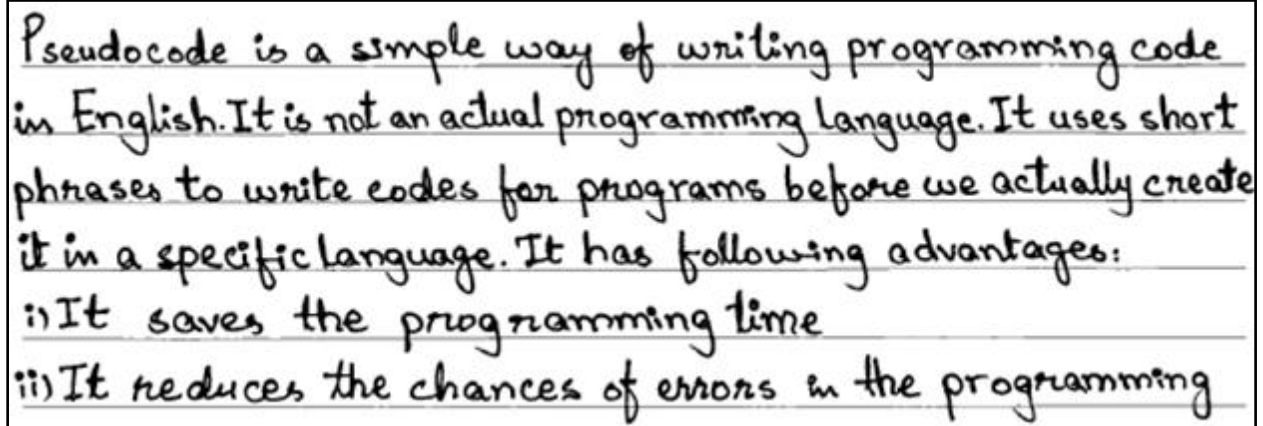 Pseudocode is a simple way of writing programming code
in English. It is not an actual programming language. It uses short
phrases to write codes for programs before we actually create
it in a specific language. It has following advantages:
i) It saves the programming time
ii) It reduces the chances of errors in the programming